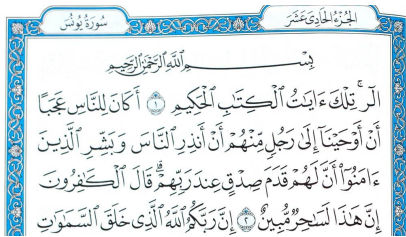 الجزء الحادي عشر
سورة يونس
بِسْمِ ٱللَّهِ ٱلرَّحْمَٰنِ ٱلرَّحِيمِ
الٓر ۚ تِلْكَ ءَايَٰتُ ٱلْكِتَٰبِ ٱلْحَكِيمِ ١ أَكَانَ لِلنَّاسِ عَجَبًا
أَنْ أَوْحَيْنَآ إِلَىٰ رَجُلٍ مِّنْهُمْ أَنْ أَنذِرِ ٱلنَّاسَ وَبَشِّرِ ٱلَّذِينَ
ءَامَنُوٓا۟ أَنَّ لَهُمْ قَدَمَ صِدْقٍ عِندَ رَبِّهِمْ ۗ قَالَ ٱلْكَٰفِرُونَ
إِنَّ هَٰذَا لَسَٰحِرٌ مُّبِينٌ ٢ إِنَّ رَبَّكُمُ ٱللَّهُ ٱلَّذِى خَلَقَ ٱلسَّمَٰوَٰتِ